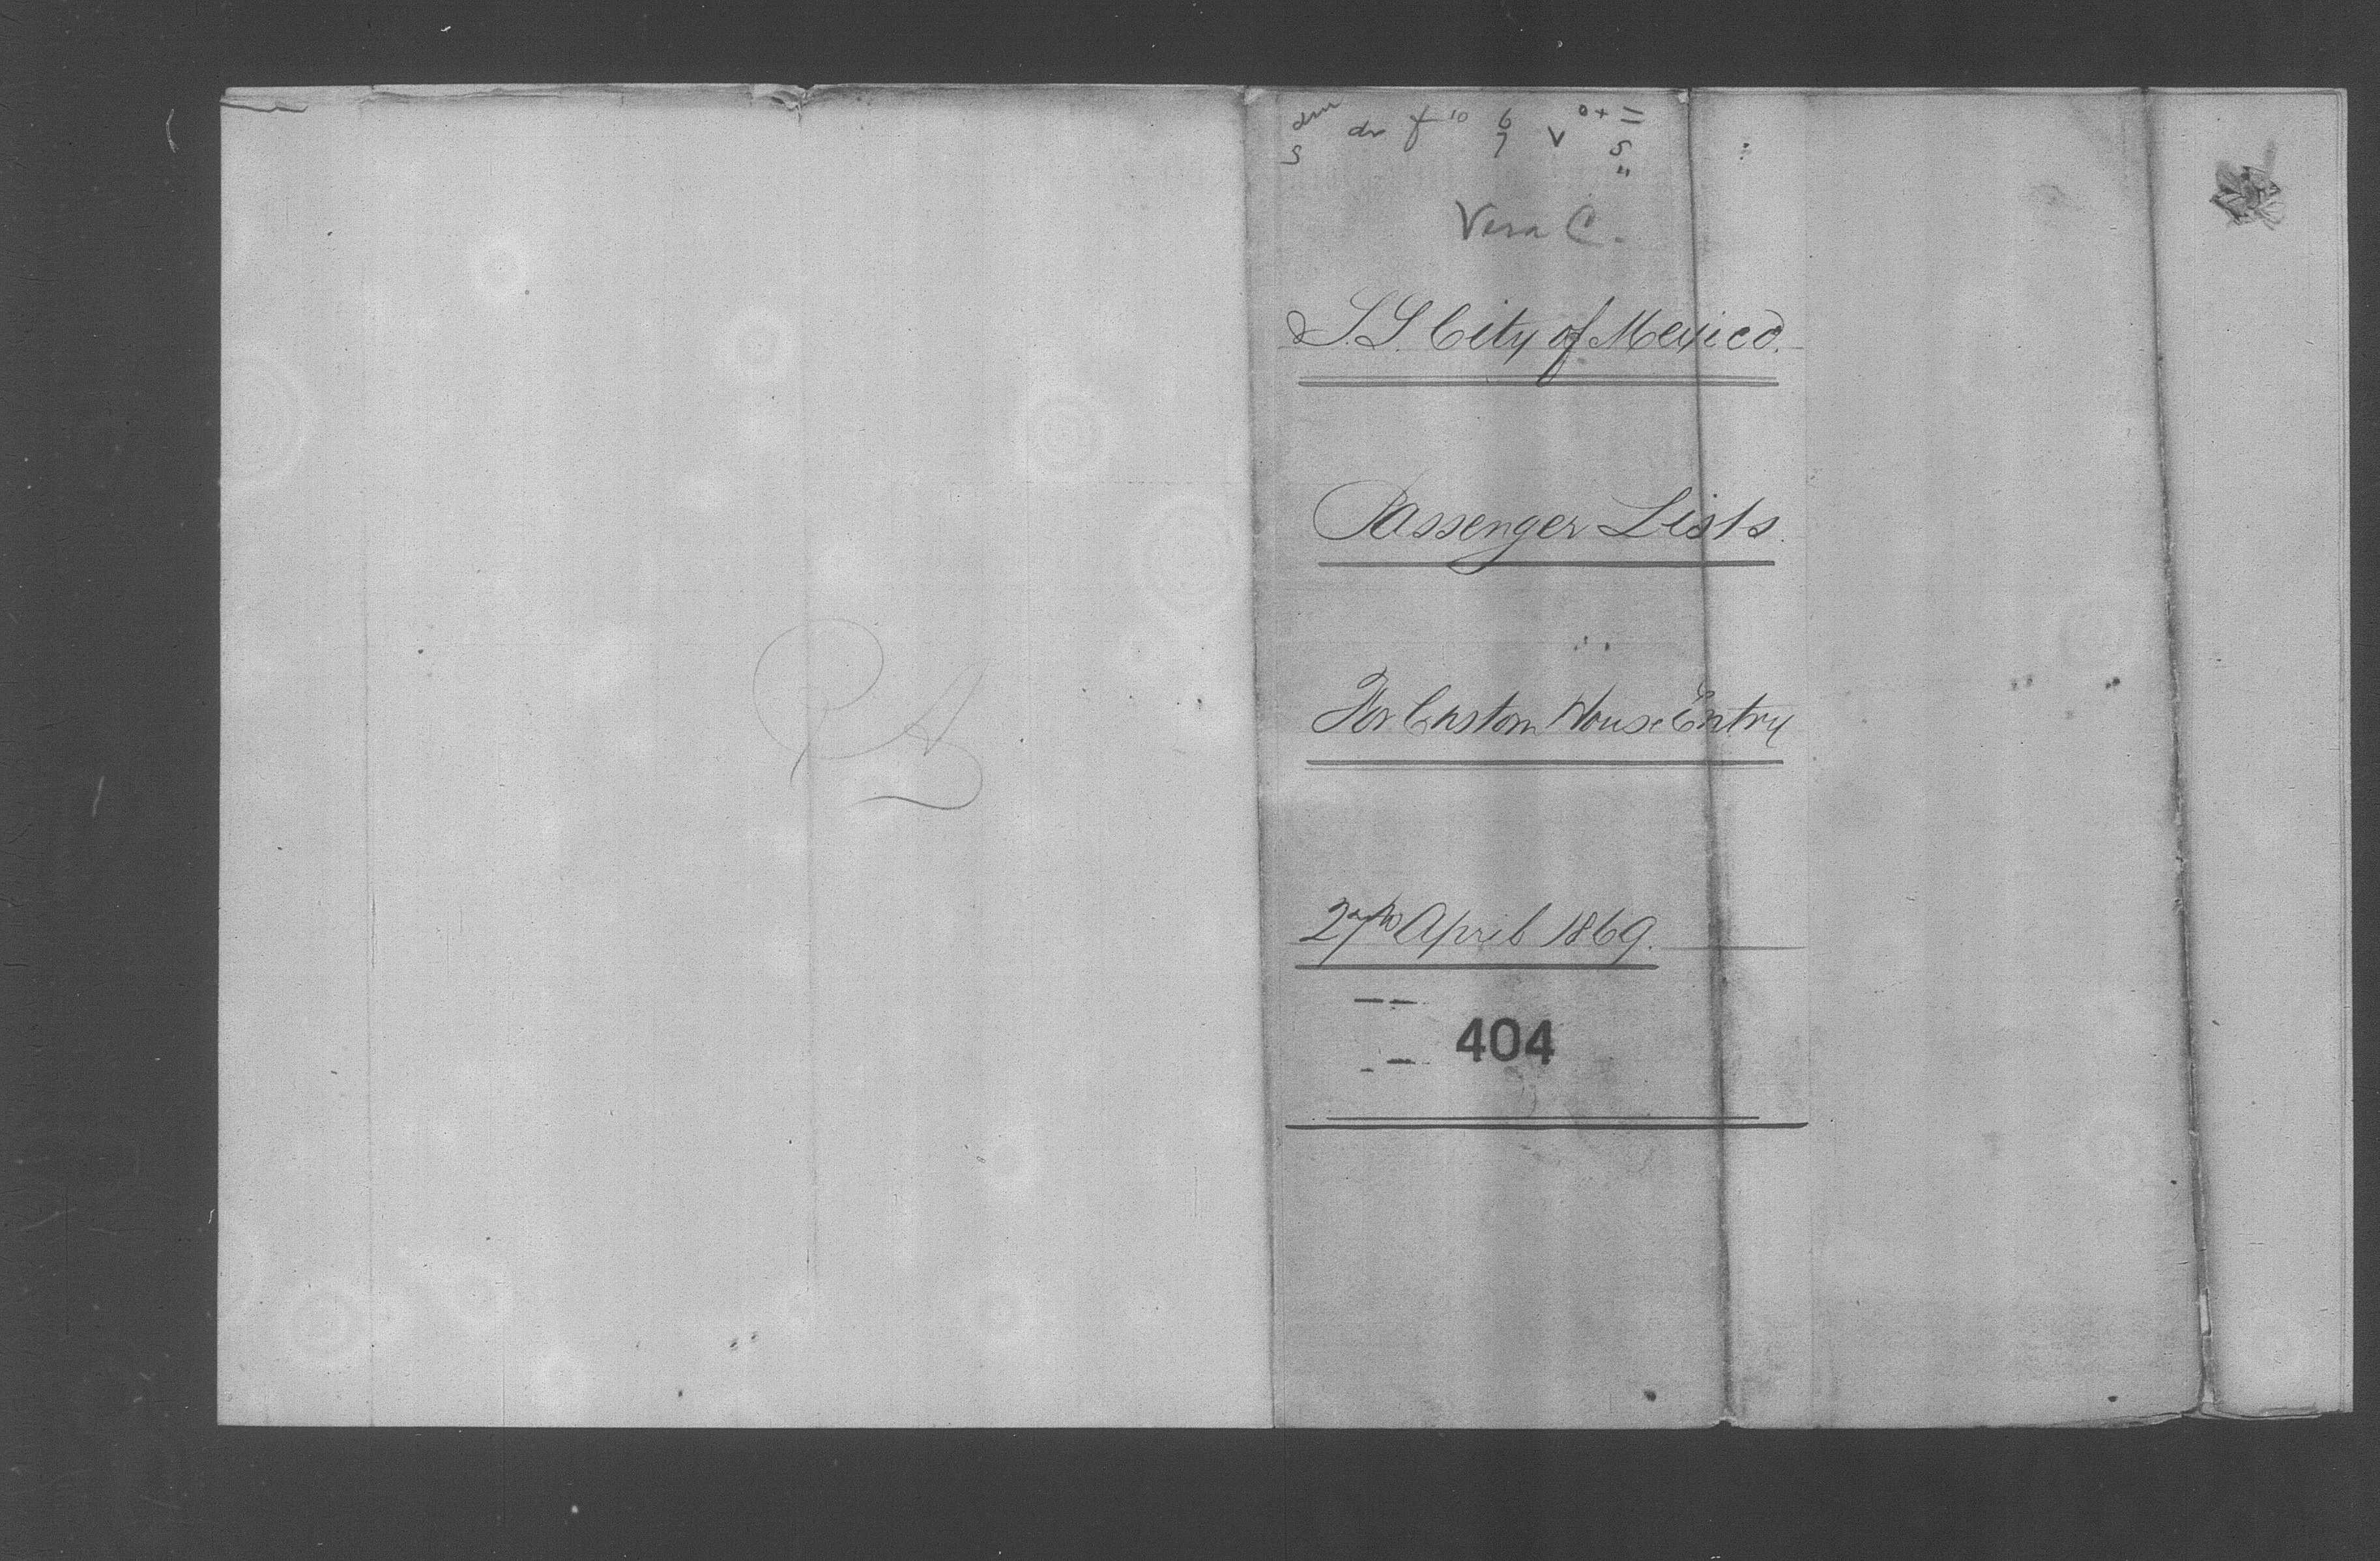 Vera C.
S.S. City of Mexico.
Passenger Lists.
For Custom House Entry
27th April 1869.
404